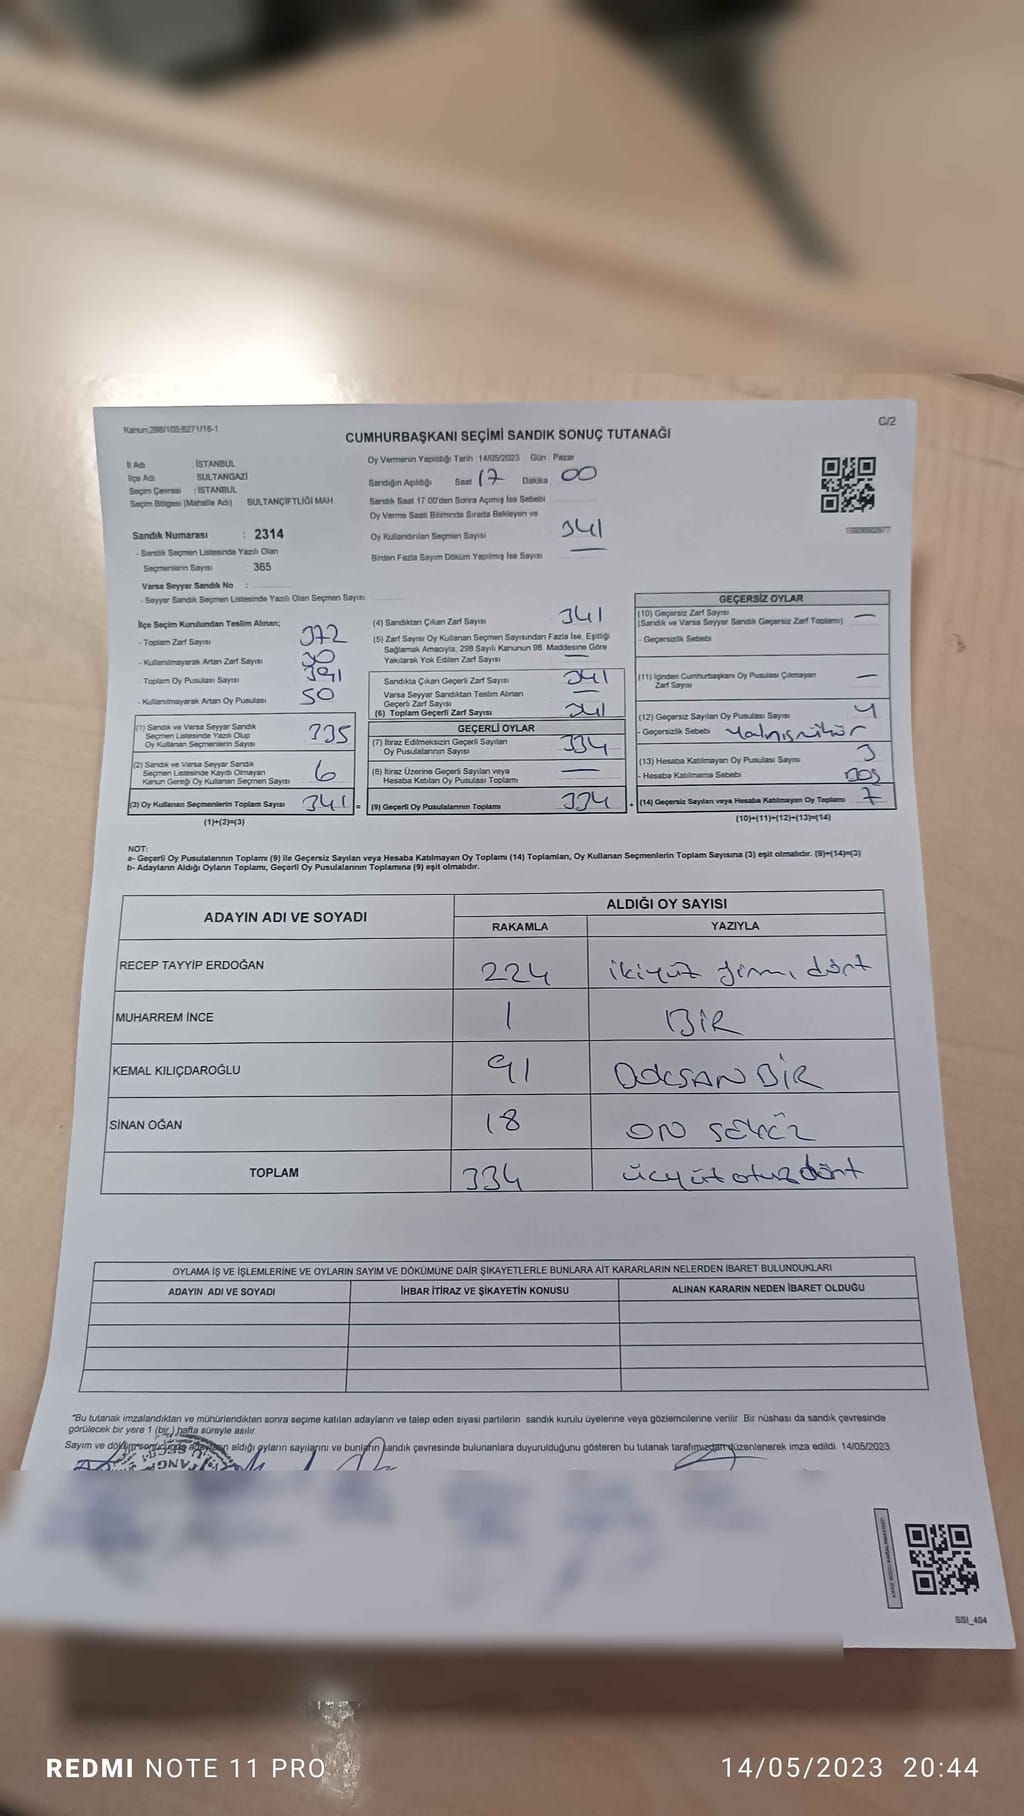 Kanun:298/105;6271/16-1
C/2
CUMHURBAŞKANI SEÇİMİ SANDIK SONUÇ TUTANAĞI
İl Adı İSTANBUL
İlçe Adı SULTANGAZİ
Seçim Çevresi : İSTANBUL
Seçim Bölgesi (Mahalle Adı) : SULTANÇİFTLİĞİ MAH
Oy Vermenin Yapıldığı Tarih : 14/05/2023 Gün : Pazar
Sandığın Açıldığı Saat 17 Dakika 00
Sandık Saat 17.00'den Sonra Açımış İse Sebebi
Oy Verme Saati Bitiminde Sırada Bekleyen ve
Oy Kullandırılan Seçmen Sayısı 341
Birden Fazla Sayım Döküm Yapılmış İse Sayısı
Sandık Numarası : 2314
- Sandık Seçmen Listesinde Yazılı Olan
Seçmenlerin Sayısı : 365
Varsa Seyyar Sandık No :
- Seyyar Sandık Seçmen Listesinde Yazılı Olan Seçmen Sayısı
İlçe Seçim Kurulundan Teslim Alınan;
- Toplam Zarf Sayısı 372
- Kullanılmayarak Artan Zarf Sayısı 30
- Toplam Oy Pusulası Sayısı 391
- Kullanılmayarak Artan Oy Pusulası 50
(1) Sandık ve Varsa Seyyar Sandık
Seçmen Listesinde Yazılı Olup
Oy Kullanan Seçmenlerin Sayısı 335
(2) Sandık ve Varsa Seyyar Sandık
Seçmen Listesinde Kayıtlı Olmayan
Kanun Gereği Oy Kullanan Seçmen Sayısı 6
(3) Oy Kullanan Seçmenlerin Toplam Sayısı 341 =
(1)+(2)=(3)
(4) Sandıktan Çıkan Zarf Sayısı 341
(5) Zarf Sayısı Oy Kullanan Seçmen Sayısından Fazla İse, Eşitliği
Sağlamak Amacıyla, 298 Sayılı Kanunun 98. Maddesine Göre
Yakılarak Yok Edilen Zarf Sayısı —
Sandıkta Çıkan Geçerli Zarf Sayısı 341
Varsa Seyyar Sandıktan Teslim Alınan
Geçerli Zarf Sayısı —
(6) Toplam Geçerli Zarf Sayısı 341
GEÇERLİ OYLAR
(7) İtiraz Edilmeksizin Geçerli Sayılan
Oy Pusulalarının Sayısı 334
(8) İtiraz Üzerine Geçerli Sayılan veya
Hesaba Katılan Oy Pusulası Toplamı —
(9) Geçerli Oy Pusulalarının Toplamı 334 +
GEÇERSİZ OYLAR
(10) Geçersiz Zarf Sayısı
(Sandık ve Varsa Seyyar Sandık Geçersiz Zarf Toplamı) —
- Geçersizlik Sebebi
(11) İçinden Cumhurbaşkanı Oy Pusulası Çıkmayan
Zarf Sayısı —
(12) Geçersiz Sayılan Oy Pusulası Sayısı 4
- Geçersizlik Sebebi
(13) Hesaba Katılmayan Oy Pusulası Sayısı 3
- Hesaba Katılmama Sebebi BOŞ
(14) Geçersiz Sayılan veya Hesaba Katılmayan Oy Toplamı 7
(10)+(11)+(12)+(13)=(14)
NOT:
a- Geçerli Oy Pusulalarının Toplamı (9) ile Geçersiz Sayılan veya Hesaba Katılmayan Oy Toplamı (14) Toplamları, Oy Kullanan Seçmenlerin Toplam Sayısına (3) eşit olmalıdır. (9)+(14)=(3)
b- Adayların Aldığı Oyların Toplamı, Geçerli Oy Pusulalarının Toplamına (9) eşit olmalıdır.
ADAYIN ADI VE SOYADI
ALDIĞI OY SAYISI
RAKAMLA YAZIYLA
RECEP TAYYİP ERDOĞAN 224 ikiyüz yirmi dört
MUHARREM İNCE 1 BİR
KEMAL KILIÇDAROĞLU 91 DOKSAN BİR
SİNAN OĞAN 18 ON SEKİZ
TOPLAM 334 üçyüz otuz dört
OYLAMA İŞ VE İŞLEMLERİNE VE OYLARIN SAYIM VE DÖKÜMÜNE DAİR ŞİKAYETLERLE BUNLARA AİT KARARLARIN NELERDEN İBARET BULUNDUKLARI
ADAYIN ADI VE SOYADI İHBAR İTİRAZ VE ŞİKAYETİN KONUSU ALINAN KARARIN NEDEN İBARET OLDUĞU
"Bu tutanak imzalandıktan ve mühürlendikten sonra seçime katılan adayların ve talep eden siyasi partilerin sandık kurulu üyelerine veya gözlemcilerine verilir. Bir nüshası da sandık çevresinde
görülecek bir yere 1 (bir ) hafta süreyle asılır.
Sayım ve döküm sonucunda adayların aldığı oyların sayılarını ve bunların sandık çevresinde bulunanlara duyurulduğunu gösteren bu tutanak tarafımızdan düzenlenerek imza edildi. 14/05/2023
SSI_404
REDMI NOTE 11 PRO
14/05/2023 20:44